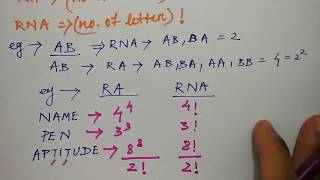 RNA ⇒ (no. of letter) !
eg → AB ⇒ RNA → AB, BA = 2
AB → RA → AB, BA, AA, BB = 4 = 2²
eg → RA RNA
NAME → 4⁴ 4!
PEN → 3³ 3!
APTITUDE → 8⁸/2! 8!/2!